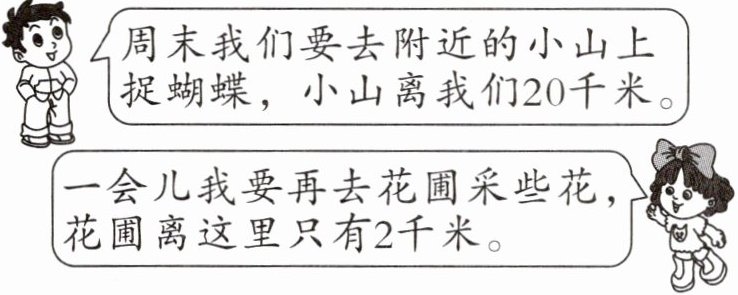 周末我们要去附近的小山上
捉蝴蝶，小山离我们20千米。
一会儿我要再去花圃采些花，
花圃离这里只有2千米。